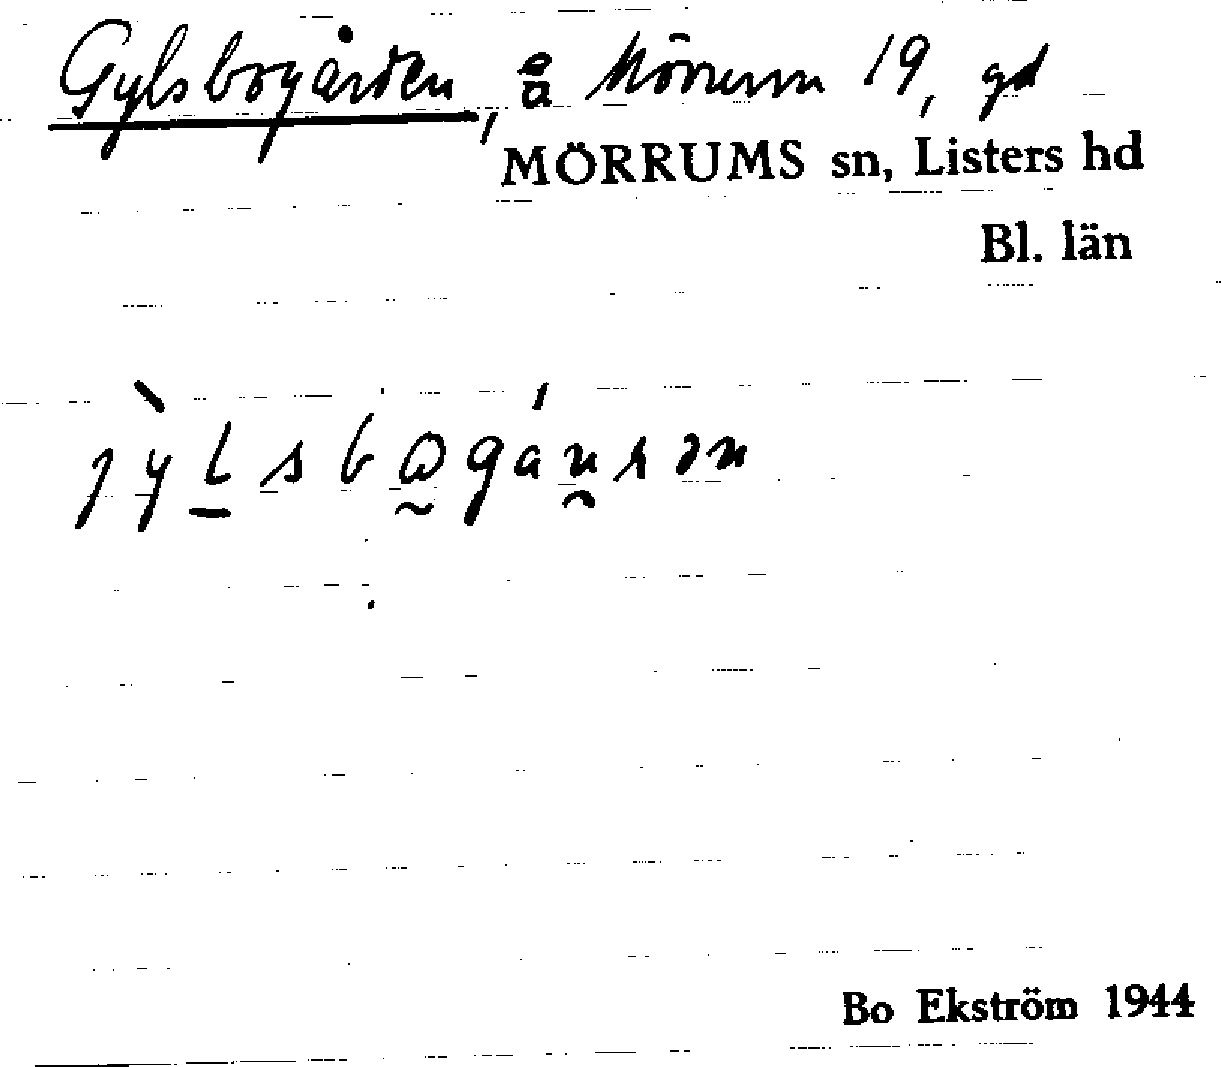 Gylsbogården, å Mörrum 19, gd
MÖRRUMS sn, Listers hd
Bl. län
Bo Ekström 1944